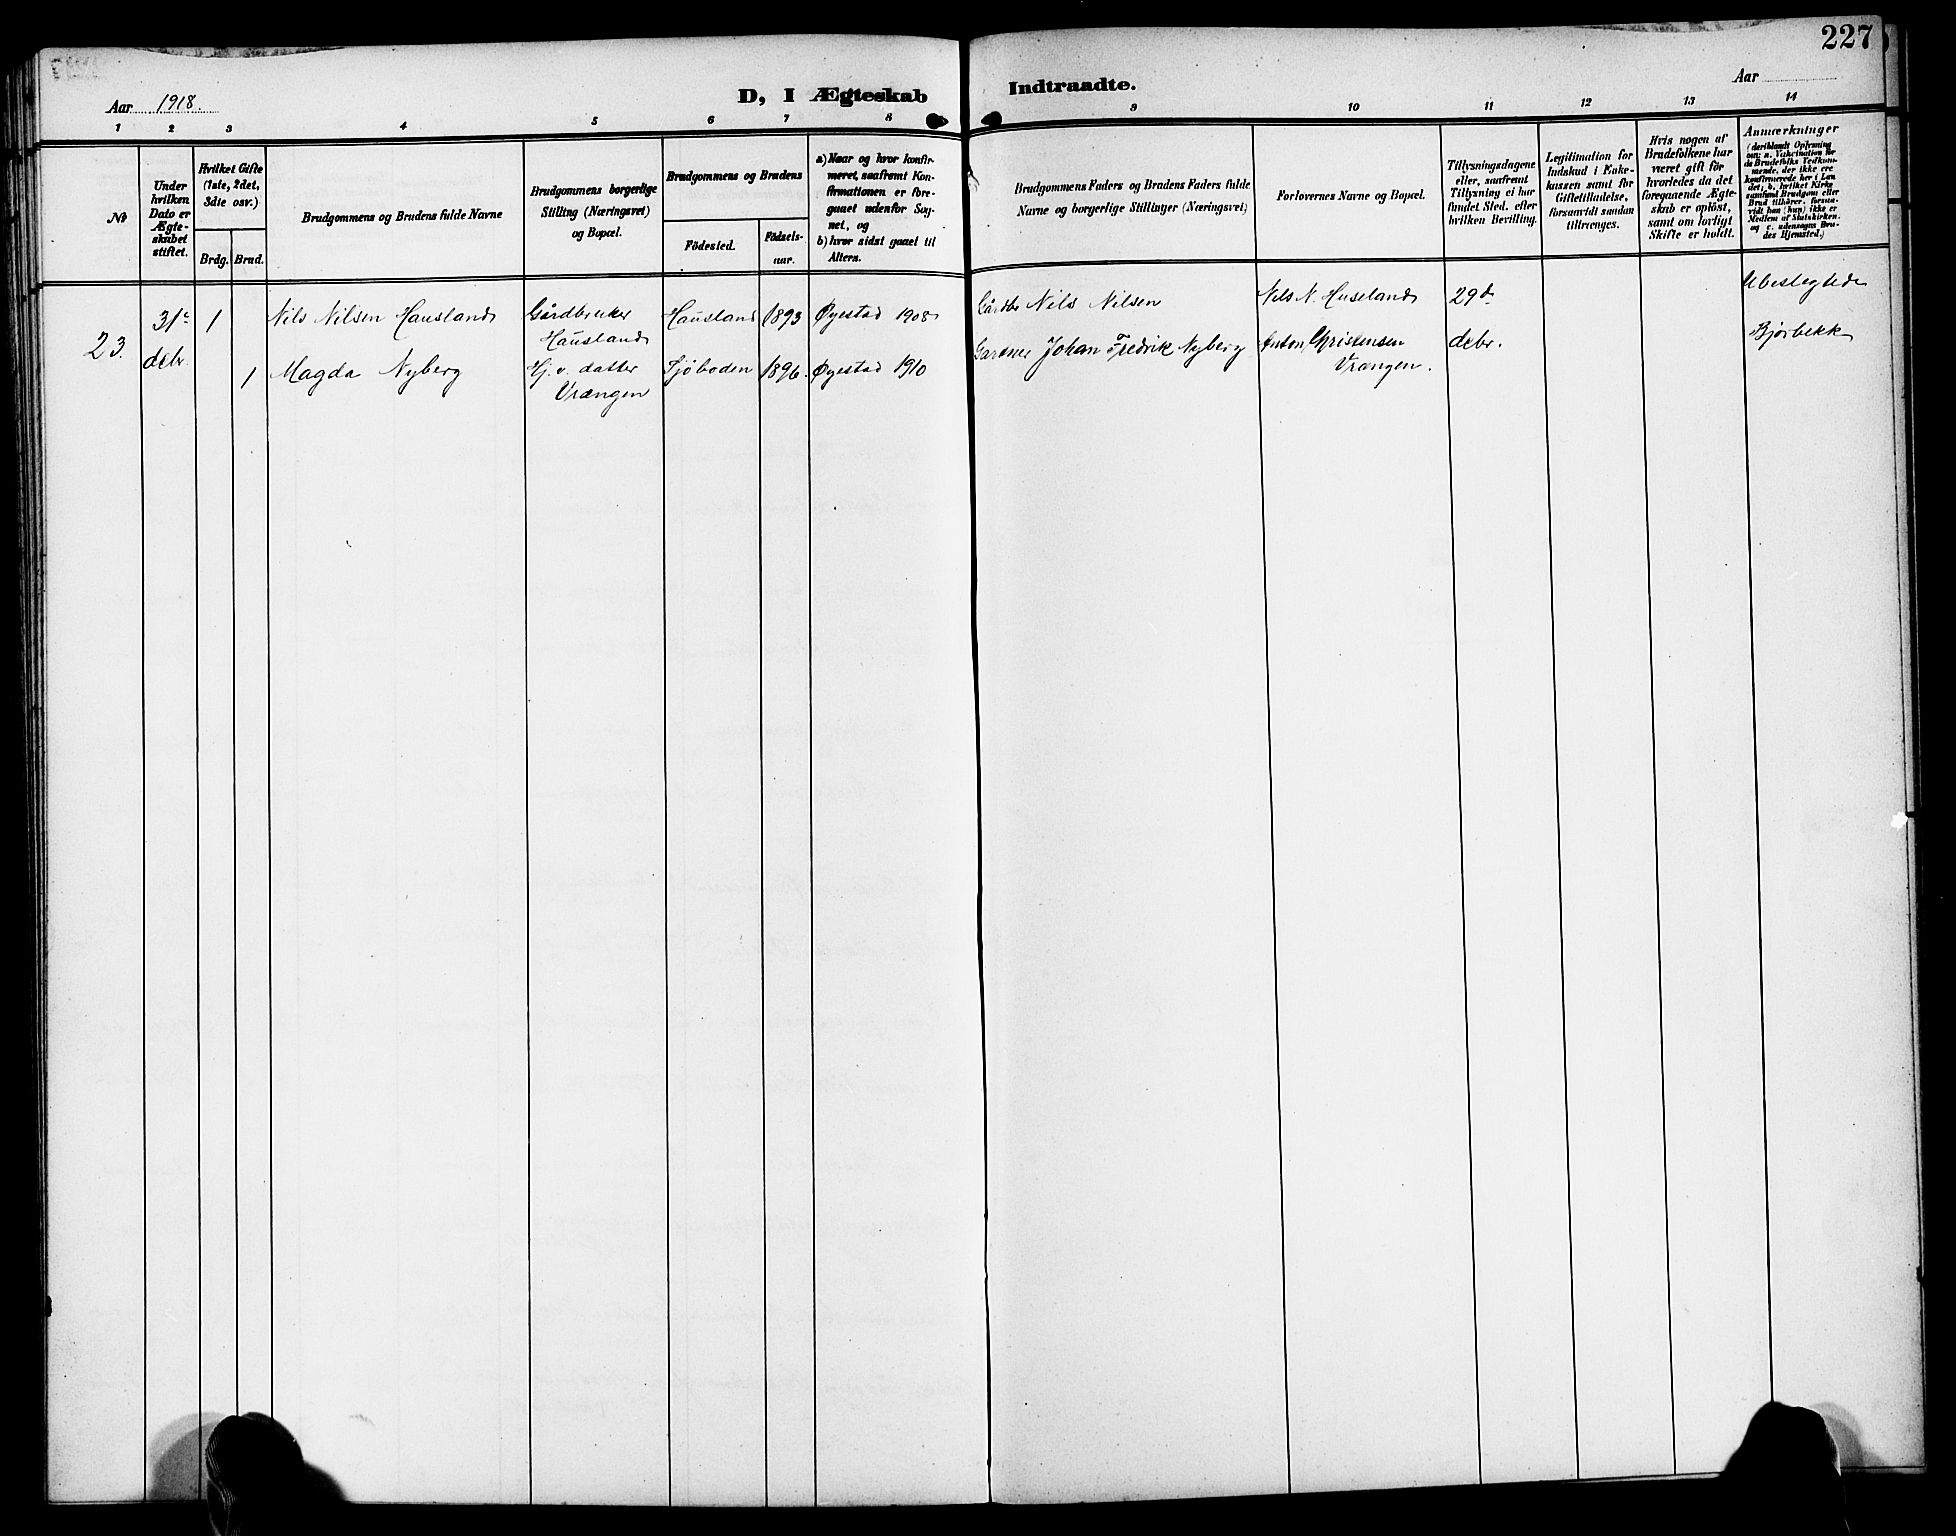 227
Aar 1918.
D, I Ægteskab
Indtraadte.
Aar
1 2 3 4 5 6 7 8
9 10 11 12 13 14
No
Under
hvilken
Dato er
Ægte-
skabet
stiftet.
Hvilket Gifte
(1ste, 2det,
3die osv.)
Brdg. Brud.
Brudgommens og Brudens fulde Navne
Brudgommens borgerlige
Stilling (Næringsvei)
og Bopæl.
Brudgommens og Brudens
Födested.
Födsels-
aar.
a) Naar og hvor konfir-
meret, saafremt Kon-
firmationen er fore-
gaaet udenfor Sog-
net, og
b) hvor sidst gaaet til
Alters.
Brudgommens Faders og Brudens Faders fulde
Navne og borgerlige Stillinger (Næringsvei)
Forlovernes Navne og Bopæl.
Tillysningsdagene
eller, saafremt
Tillysning ei har
fundet Sted, efter
hvilken Bevilling.
Legitimation for
Indskud i Enke-
kassen samt for
Giftetilladelse,
forsaavidt saadan
tiltrænges.
Hvis nogen af
Brudefolkene har
været gift för
hvorledes da det
foregaaende Ægte-
skab er oplöst,
samt om lovligt
Skifte er holdt.
Anmærkninger
(deriblandt Oplysning
om: a. Vakcination for
de Brudefolks Vedkom-
mende, der ikke ere
konfirmerede her i Lan
det; b. hvilket Kirke
samfund Brudgom eller
Brud tilhörer, forsaa-
vidt han (hun) ikke er
Medlem af Statskirken,
og c. udensogns Bru-
des Hjemsted.)
23.
31te
debr.
1 Nils Nilsen Hausland
Gårdbruker
Hausland
Hausland 1893 Øyestad 1908
1 Magda Nyberg
Hj. v. datter
Vrængen
Sjøboden 1896. Øyestad 1910
Gårdbr Nils Nilsen
Gartner Johan Fredrik Nyberg
Nils N. Huseland
Anton Christensen
Vrængen.
29d
debr.
Ubeslegtede
Bjørbekk